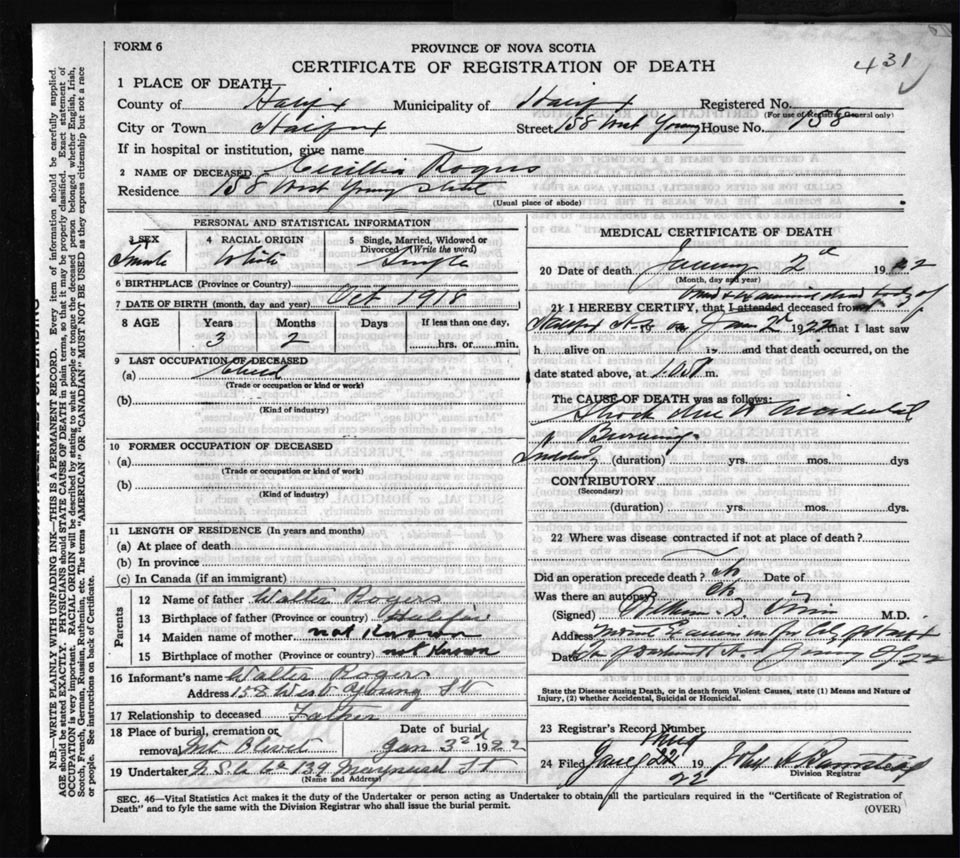 FORM 6
PROVINCE OF NOVA SCOTIA
CERTIFICATE OF REGISTRATION OF DEATH
431
1 PLACE OF DEATH
County of Halifax Municipality of Halifax Registered No.
(For use of Registrar General only)
City or Town Halifax Street 158 West Young House No. 158
If in hospital or institution, give name
2 NAME OF DECEASED Cecillia Rogers
Residence 158 West Young Street
(Usual place of abode)
PERSONAL AND STATISTICAL INFORMATION
3 SEX 4 RACIAL ORIGIN 5 Single, Married, Widowed or Divorced (Write the word)
Female White Single
6 BIRTHPLACE (Province or Country)
7 DATE OF BIRTH (month, day and year) Oct 1918
8 AGE Years Months Days If less than one day,
3 2 hrs. or min.
9 LAST OCCUPATION OF DECEASED
(a) Child
(Trade or occupation or kind or work)
(b)
(Kind of industry)
10 FORMER OCCUPATION OF DECEASED
(a)
(Trade or occupation or kind of work)
(b)
(Kind of industry)
11 LENGTH OF RESIDENCE (In years and months)
(a) At place of death
(b) In province
(c) In Canada (if an immigrant)
Parents
12 Name of father Walter Rogers
13 Birthplace of father (Province or country) Halifax
14 Maiden name of mother not Known
15 Birthplace of mother (Province or country) not Known
16 Informant's name Walter Rogers
Address 158 West Young St
17 Relationship to deceased Father
18 Place of burial, cremation or removal Mt Olivet
Date of burial Jan 3rd 1922
19 Undertaker N.S. Co 139 St
(Name and Address)
MEDICAL CERTIFICATE OF DEATH
20 Date of death January 2d 1922
(Month, day and year)
21 I HEREBY CERTIFY, that I attended deceased from
Halifax N.S. on Jan 2d 1922 that I last saw
h alive on 19 and that death occurred, on the
date stated above, at m.
The CAUSE OF DEATH was as follows:
Shock due to Accidental
Burning
(duration) yrs. mos. dys
CONTRIBUTORY
(Secondary)
(duration) yrs. mos. dys.
22 Where was disease contracted if not at place of death?
Did an operation precede death? No Date of
Was there an autopsy? No
(Signed) William D. M.D.
Address
Date
State the Disease causing Death, or in death from Violent Causes, state (1) Means and Nature of
Injury, (2) whether Accidental, Suicidal or Homicidal.
23 Registrar's Record Number
24 Filed 19 22 John
Division Registrar
SEC. 46—Vital Statistics Act makes it the duty of the Undertaker or person acting as Undertaker to obtain all the particulars required in the "Certificate of Registration of
Death" and to fyle the same with the Division Registrar who shall issue the burial permit.
(OVER)
N.B.—WRITE PLAINLY WITH UNFADING INK—THIS IS A PERMANENT RECORD. Every item of information should be carefully supplied.
AGE should be stated EXACTLY. PHYSICIANS should STATE CAUSE OF DEATH in plain terms, so that it may be properly classified. Exact statement of
OCCUPATION is very important. RACIAL ORIGIN will be described by stating to what people or tongue the deceased person belonged whether English, Irish,
Scotch, French, German, Russian, Ruthenian, etc. The terms "AMERICAN" OR "CANADIAN" MUST NOT BE USED as they express citizenship but not a race
or people. See instructions on back of Certificate.